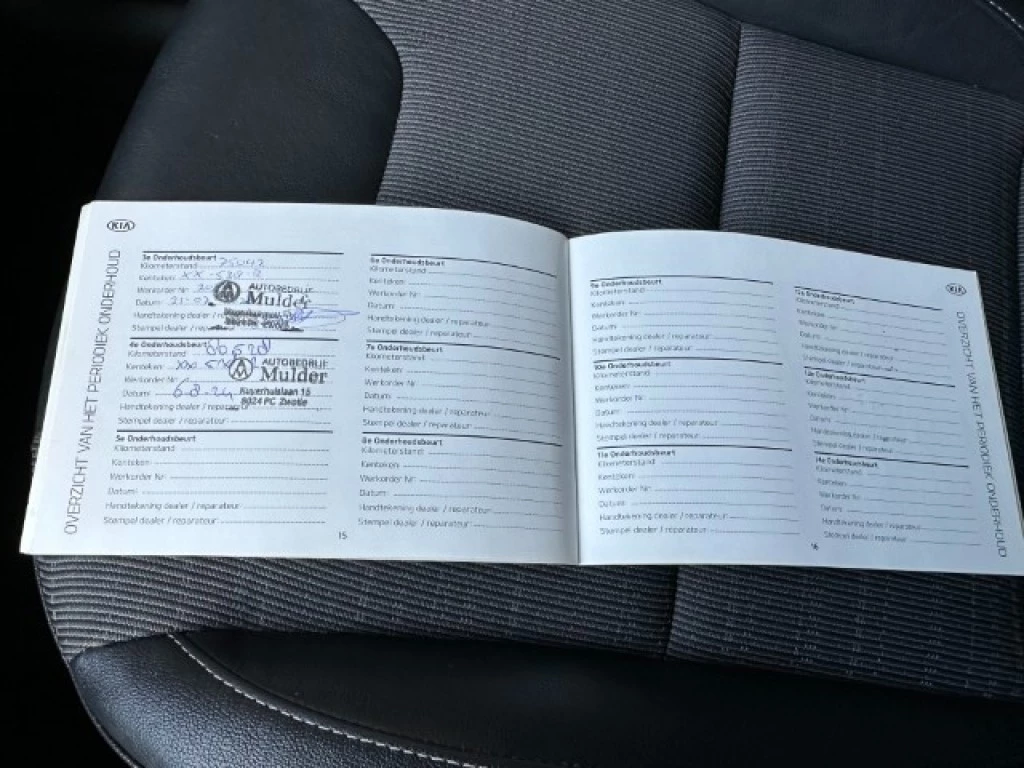 KIA
OVERZICHT VAN HET PERIODIEK ONDERHOUD
3e Onderhoudsbeurt
Kilometerstand
Kenteken:
Werkorder Nr:
Datum:
Handtekening dealer / reparateur
Stempel dealer / reparateur
AUTOBEDRIJF
Mulder
4e Onderhoudsbeurt
Kilometerstand
Kenteken:
Werkorder Nr:
Datum: 6-8-24
Handtekening dealer / reparateur
Stempel dealer / reparateur
AUTOBEDRIJF
Mulder
Kuyerhuislaan 15
8024 PC Zwolle
5e Onderhoudsbeurt
Kilometerstand
Kenteken:
Werkorder Nr:
Datum:
Handtekening dealer / reparateur
Stempel dealer / reparateur
6e Onderhoudsbeurt
Kilometerstand
Kenteken:
Werkorder Nr:
Datum:
Handtekening dealer / reparateur
Stempel dealer / reparateur
7e Onderhoudsbeurt
Kilometerstand
Kenteken:
Werkorder Nr:
Datum:
Handtekening dealer / reparateur
Stempel dealer / reparateur
8e Onderhoudsbeurt
Kilometerstand:
Kenteken:
Werkorder Nr:
Datum:
Handtekening dealer / reparateur
Stempel dealer / reparateur
15
9e Onderhoudsbeurt
Kilometerstand
Kenteken:
Werkorder Nr:
Datum:
Handtekening dealer / reparateur
Stempel dealer / reparateur
10e Onderhoudsbeurt
Kilometerstand
Kenteken:
Werkorder Nr:
Datum:
Handtekening dealer / reparateur
Stempel dealer / reparateur
11e Onderhoudsbeurt
Kilometerstand
Kenteken:
Werkorder Nr:
Datum:
Handtekening dealer / reparateur
Stempel dealer / reparateur
12e Onderhoudsbeurt
Kilometerstand
Kenteken:
Werkorder Nr:
Datum:
Handtekening dealer / reparateur
Stempel dealer / reparateur
13e Onderhoudsbeurt
Kilometerstand
Kenteken:
Werkorder Nr:
Datum:
Handtekening dealer / reparateur
Stempel dealer / reparateur
14e Onderhoudsbeurt
Kilometerstand
Kenteken:
Werkorder Nr:
Datum:
Handtekening dealer / reparateur
Stempel dealer / reparateur
16
KIA
OVERZICHT VAN HET PERIODIEK ONDERHOUD